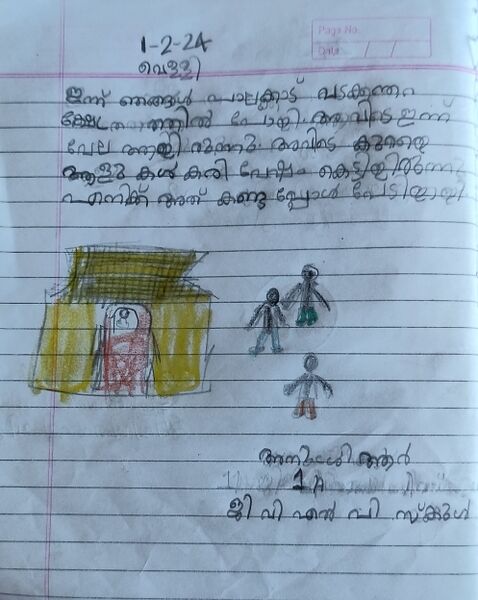 Page No.
Date / /
1-2-24
വെള്ളി
ഇന്ന് ഞങ്ങൾ പാലക്കാട് വടക്കന്തറ
ക്ഷേത്രത്തിൽ പോയി അവിടെ ഇന്ന്
വേല ആയി രുന്നു അവിടെ കുറെ
ആളു കൾ കരി വേഷം കെട്ടിയിരുന്നു
എനിക്ക് അത് കണ്ട പ്പോൾ പേടിയായി
ആർ
1 A
ജി വി എൻ പി സ്കൂൾ